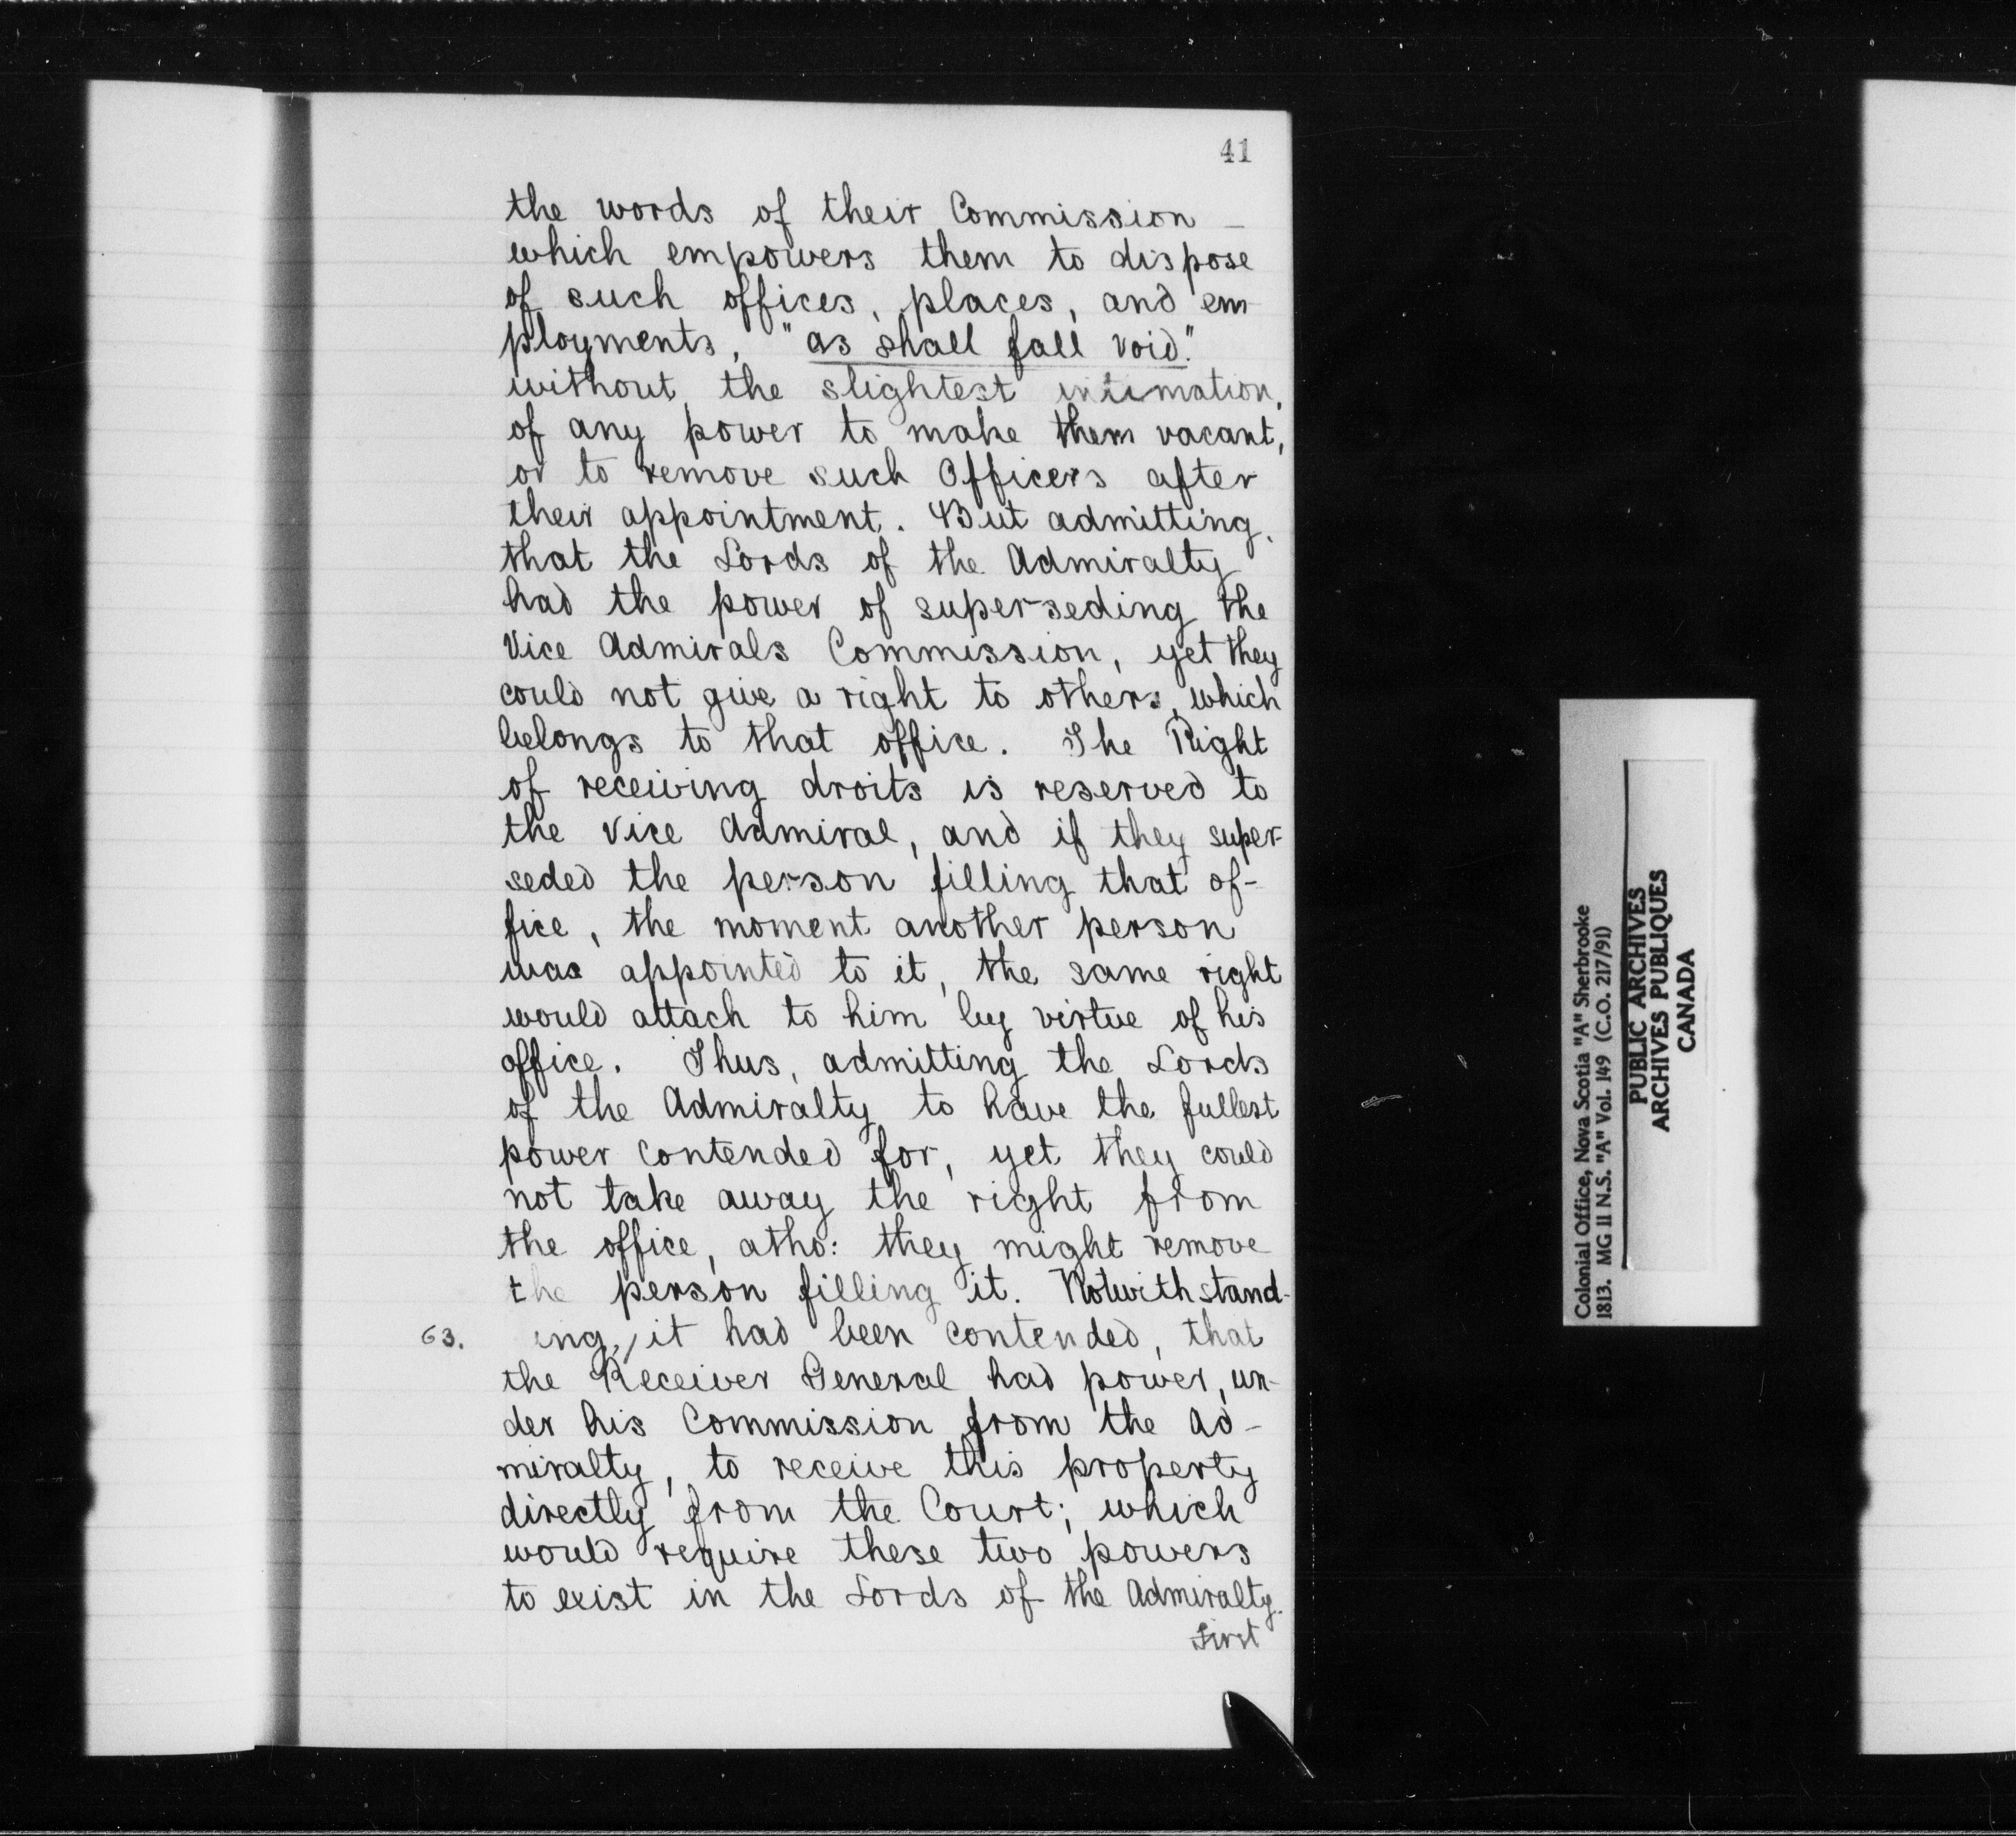 41
the words of their Commission –
which empowers them to dispose
of such offices, places, and em
ployments, "as shall fall void."
without the slightest intimation,
of any power to make them vacant,
or to remove such Officers after
their appointment. But admitting,
that the Lords of the Admiralty
had the power of superseding the
Vice Admirals Commission, yet they
could not give a right to others, which
belongs to that office. The Right
of receiving droits is reserved to
the Vice Admiral, and if they super-
seded the person filling that of-
fice, the moment another person
was appointed to it, the same right
would attach to him by virtue of his
office. Thus, admitting the Lords
of the Admiralty to have the fullest
power contended for, yet they could
not take away the right from
the office, atho: they might remove
the person filling it. Notwithstand-
63. ing,/it had been contended, that
the Receiver General had power, un-
der his Commission from the Ad-
miralty, to receive this property
directly from the Court; which
would require these two powers
to exist in the Lords of the Admiralty.
First
Colonial Office, Nova Scotia "A" Sherbrooke
1813. MG 11 N.S. "A" Vol. 149 (C.O. 217/91)
PUBLIC ARCHIVES
ARCHIVES PUBLIQUES
CANADA